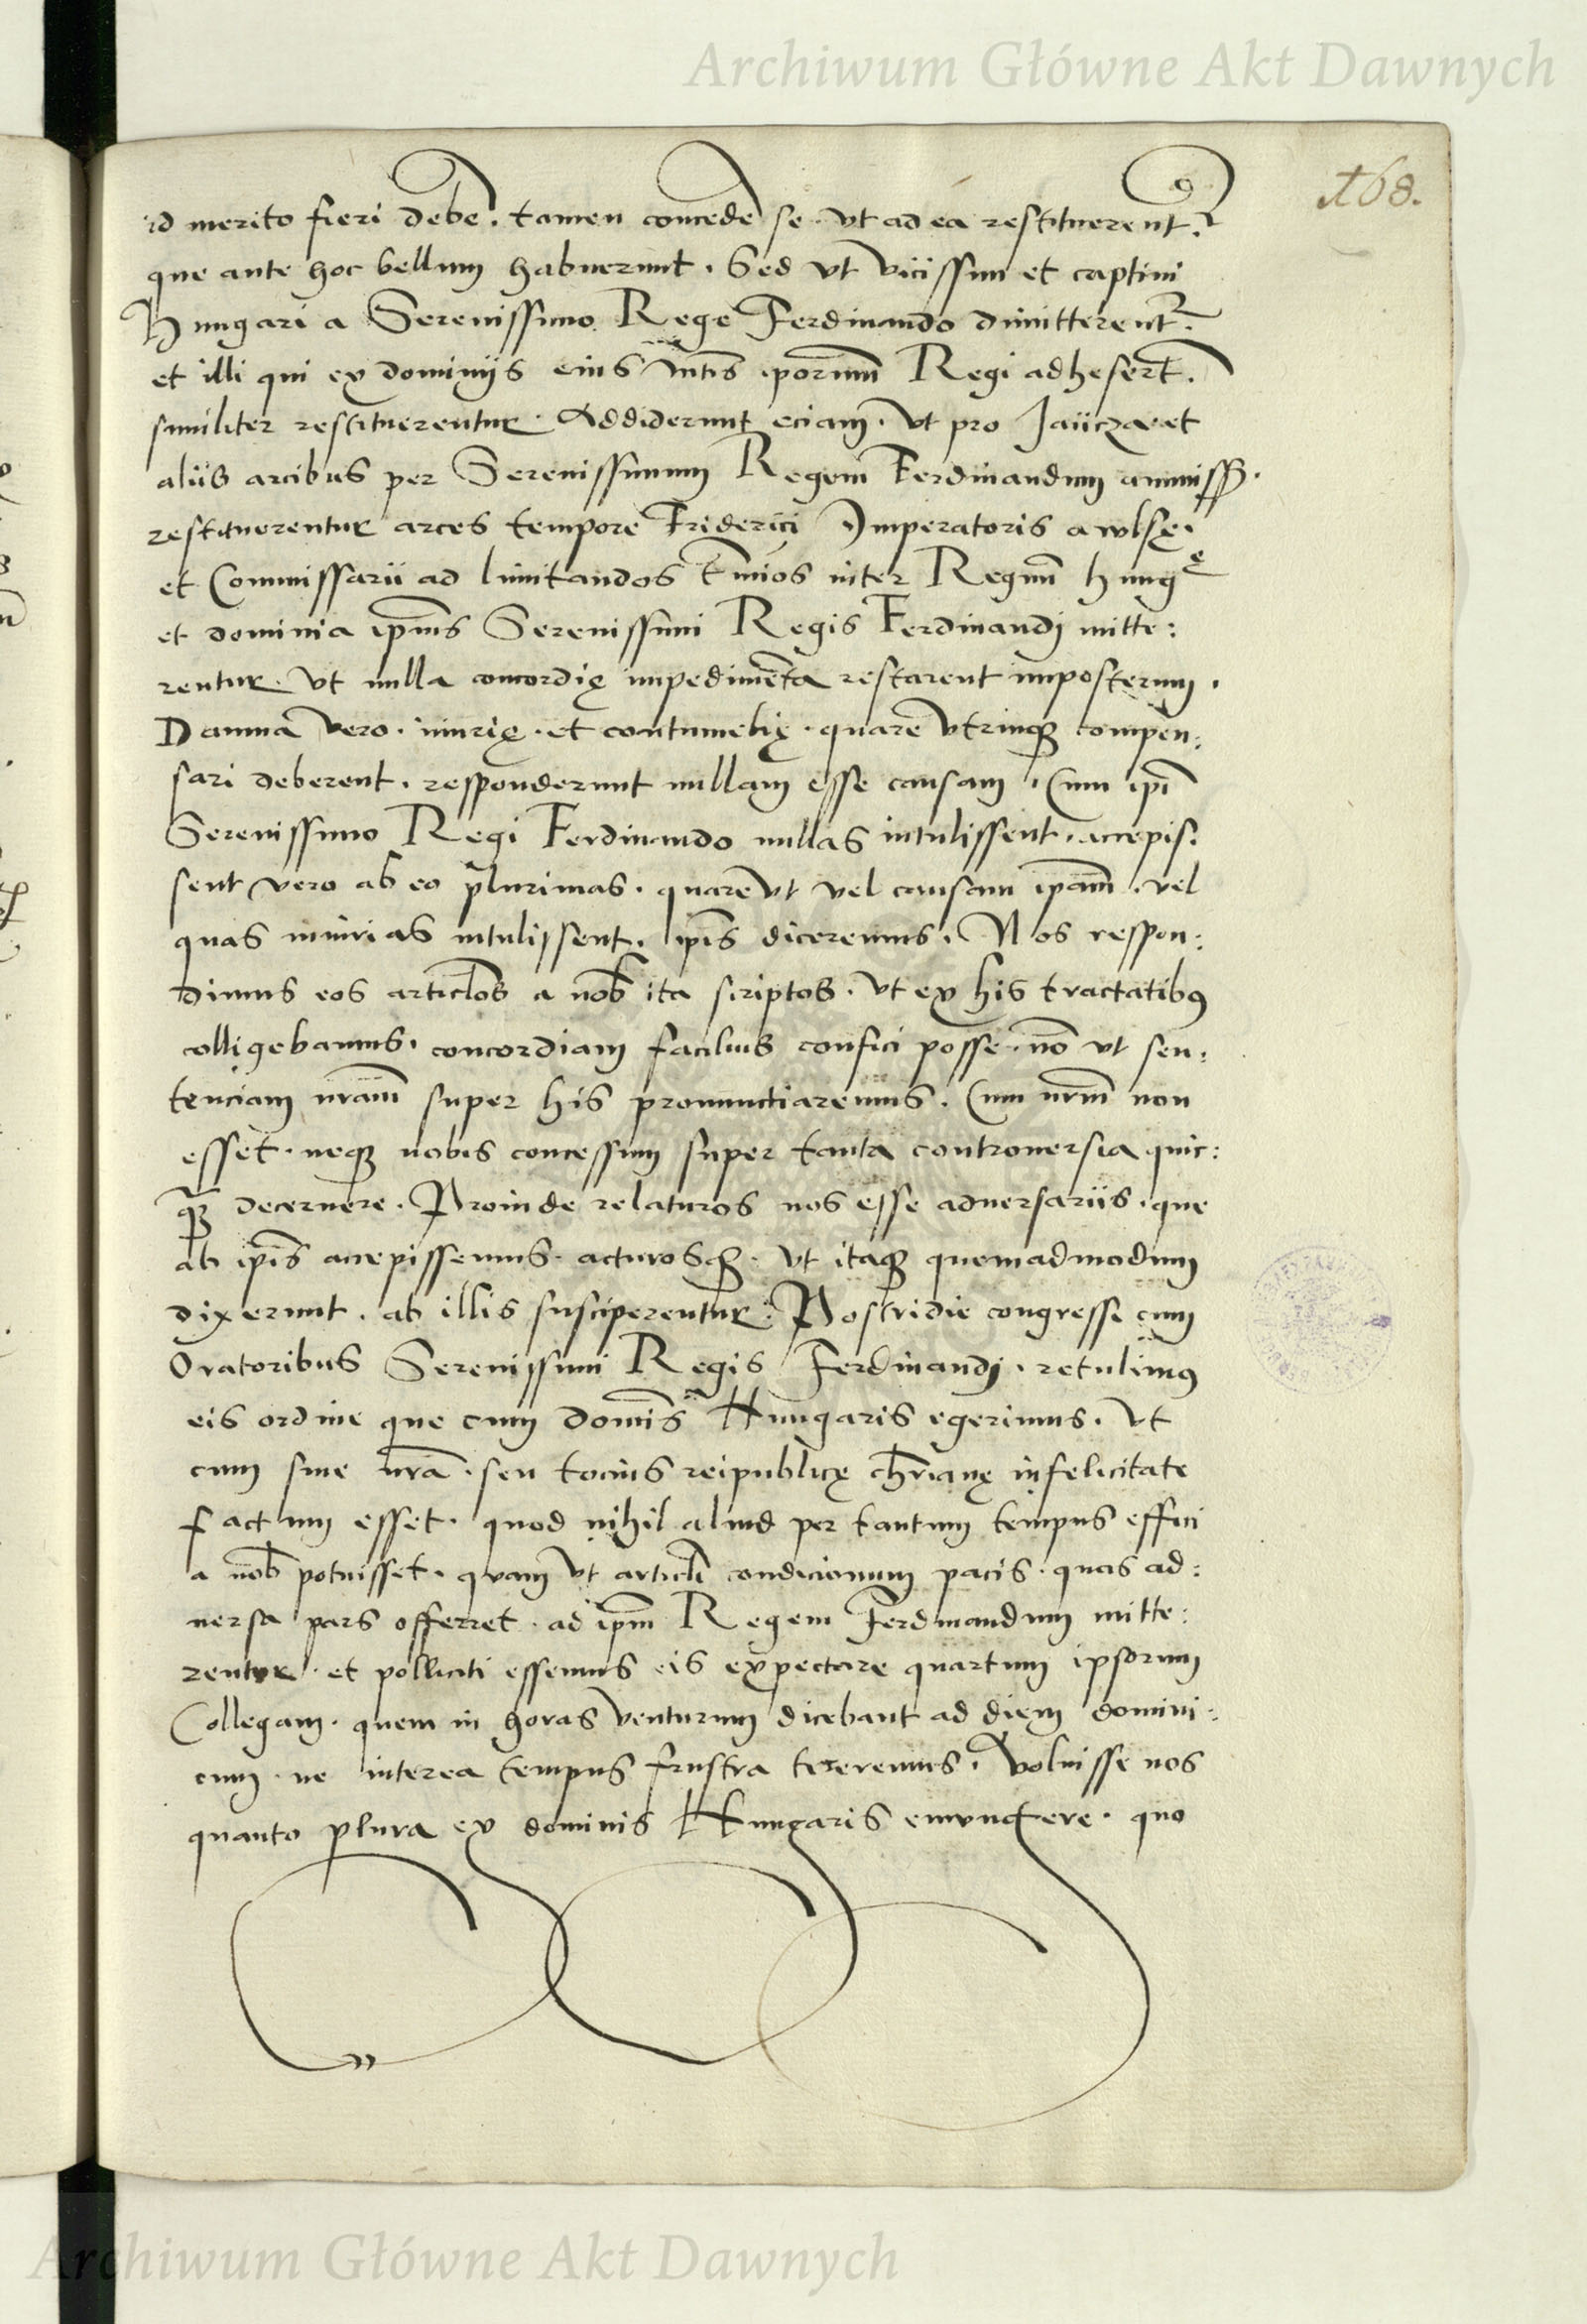 Archiwum Główne Akt Dawnych
168.
id merito fieri debe͡t. tamen concede͡ se. vt ad ea restituerent͡ur
que ante hoc bellum habuerunt. Sed vt vicissim et captiui
Hungari a Serenissimo Rege Ferdinando dimitterent͡r.
et illi qui ex dominijs eius Mtis ipsorum Regi adhesert.
similiter restituerentur. Addiderunt eciam. vt pro Jaiicza et
aliis arcibus per Serenissimum Regem Ferdinandum ammiss.
restituerentur arces tempore Friderici Imperatoris awlsę.
et Commissarii ad limitandos t͡mios inter Regnum Hungę
et dominia ip͡ius Serenissimi Regis Ferdinandj mitte:
rentur. vt nulla concordię impedime͡ta restarent imposterum.
Damna vero. iniurię. et contumelię. quare vtrinq͡ compen:
sari deberent. responderunt nullam esse causam. Cum ip͡i
Serenissimo Regi Ferdinando nullas intulissent. accepis:
sent vero ab eo plurimas. quare vt vel causam ip͡am. vel
quas iniurias intulissent. ip͡is diceremus. Nos respon:
dimus eos articl͡os a nob͡ ita scriptos. vt ex his tractatibꝯ
colligebamus. concordiam facilius confici posse. no͡ vt sen:
tenciam nr͡am super his pronunctiaremus. Cum nr͡m non
esset. neq͡ nobis concessum super tanta controuersia quic:
q͡ decernere. Proinde relaturos nos esse aduersariis. que
ab ip͡is accepissemus. acturosq͡. vt itaq͡ quemadmodum
dixerunt. ab illis susciperentur. Postridie congresse cum
Oratoribus Serenissimi Regis Ferdinandj. retulimꝯ
eis ordine que cum Domi͡s Hungaris egerimus. Vt
cum siue nr͡a. seu tocius reipublicę chr͡ianę infelicitate
factum esset. quod nihil aliud per tantum tempus effici
a nob͡ potuisset. quam vt articl͡i condicionum pacis. quas ad:
uersa pars offerret. ad ip͡m Regem Ferdinandum mitte:
rentur. et polliciti essemus eis expectare quartum ipsorum
Collegam. quem in horas venturum dicebant ad diem domini:
cum. ne interea tempus frustra tereremus. Voluisse nos
quanto plura ex dominis Hungaris emungere. quo
Archiwum Główne Akt Dawnych